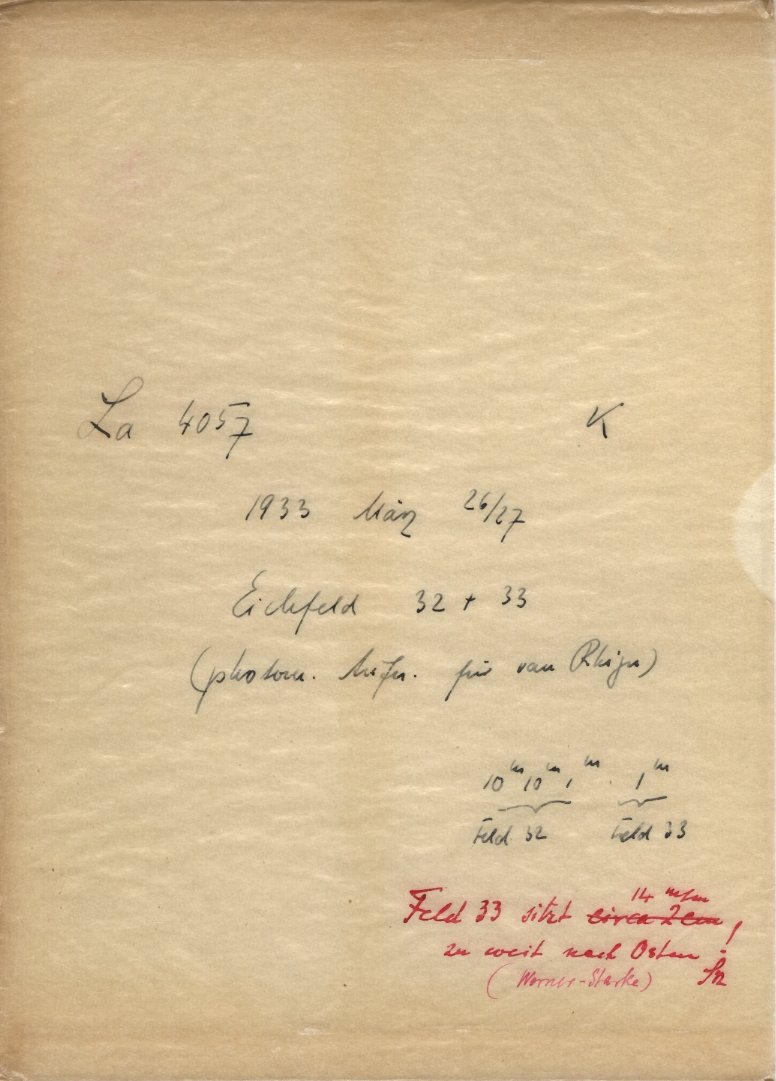 La 4057 K
1933 März 26/27
Eichfeld 32 + 33
(photom. Aufn. für van Rhijn)
10ᵐ 10ᵐ 1ᵐ 1ᵐ
Feld 32 Feld 33
14 m/m
Feld 33 sitzt circa 2 cm
zu weit nach Osten!
(Werner-Starke)